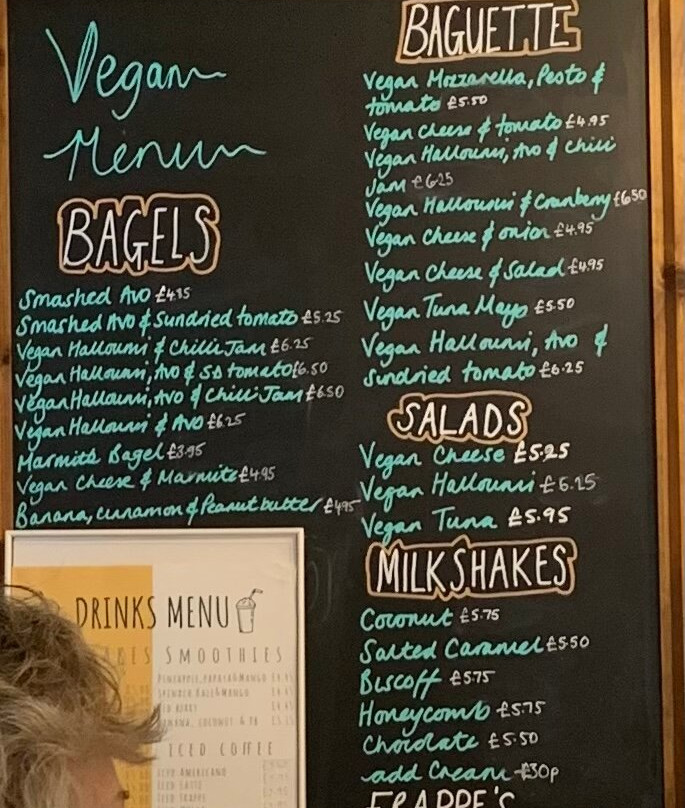 Vegan
Menu
BAGELS
Smashed Avo £4.95
Smashed Avo & Sundried tomato £5.25
Vegan Halloumi & Chilli Jam £6.25
Vegan Halloumi, Avo & SD tomato £6.50
Vegan Halloumi, Avo & Chilli Jam £6.50
Vegan Halloumi & Avo £6.25
Marmite Bagel £3.95
Vegan Cheese & Marmite £4.95
Banana, cinnamon & Peanut butter £4.95
BAGUETTE
Vegan Mozzarella, Pesto &
tomato £5.50
Vegan Cheese & tomato £4.95
Vegan Halloumi, Avo & Chilli
Jam £6.25
Vegan Halloumi & Cranberry £6.50
Vegan Cheese & onion £4.95
Vegan Cheese & Salad £4.95
Vegan Tuna Mayo £5.50
Vegan Halloumi, Avo &
Sundried tomato £6.25
SALADS
Vegan Cheese £5.25
Vegan Halloumi £6.25
Vegan Tuna £5.95
MILKSHAKES
Coconut £5.75
Salted Caramel £5.50
Biscoff £5.75
Honeycomb £5.75
Chocolate £5.50
add Cream £30p
FRAPPE'S
DRINKS MENU
SMOOTHIES
PINEAPPLE, PAPAYA & MANGO
SPINACH, KALE & MANGO
BANANA, COCONUT & PB
ICED COFFEE
ICED AMERICANO
ICED LATTE
ICED FRAPPE